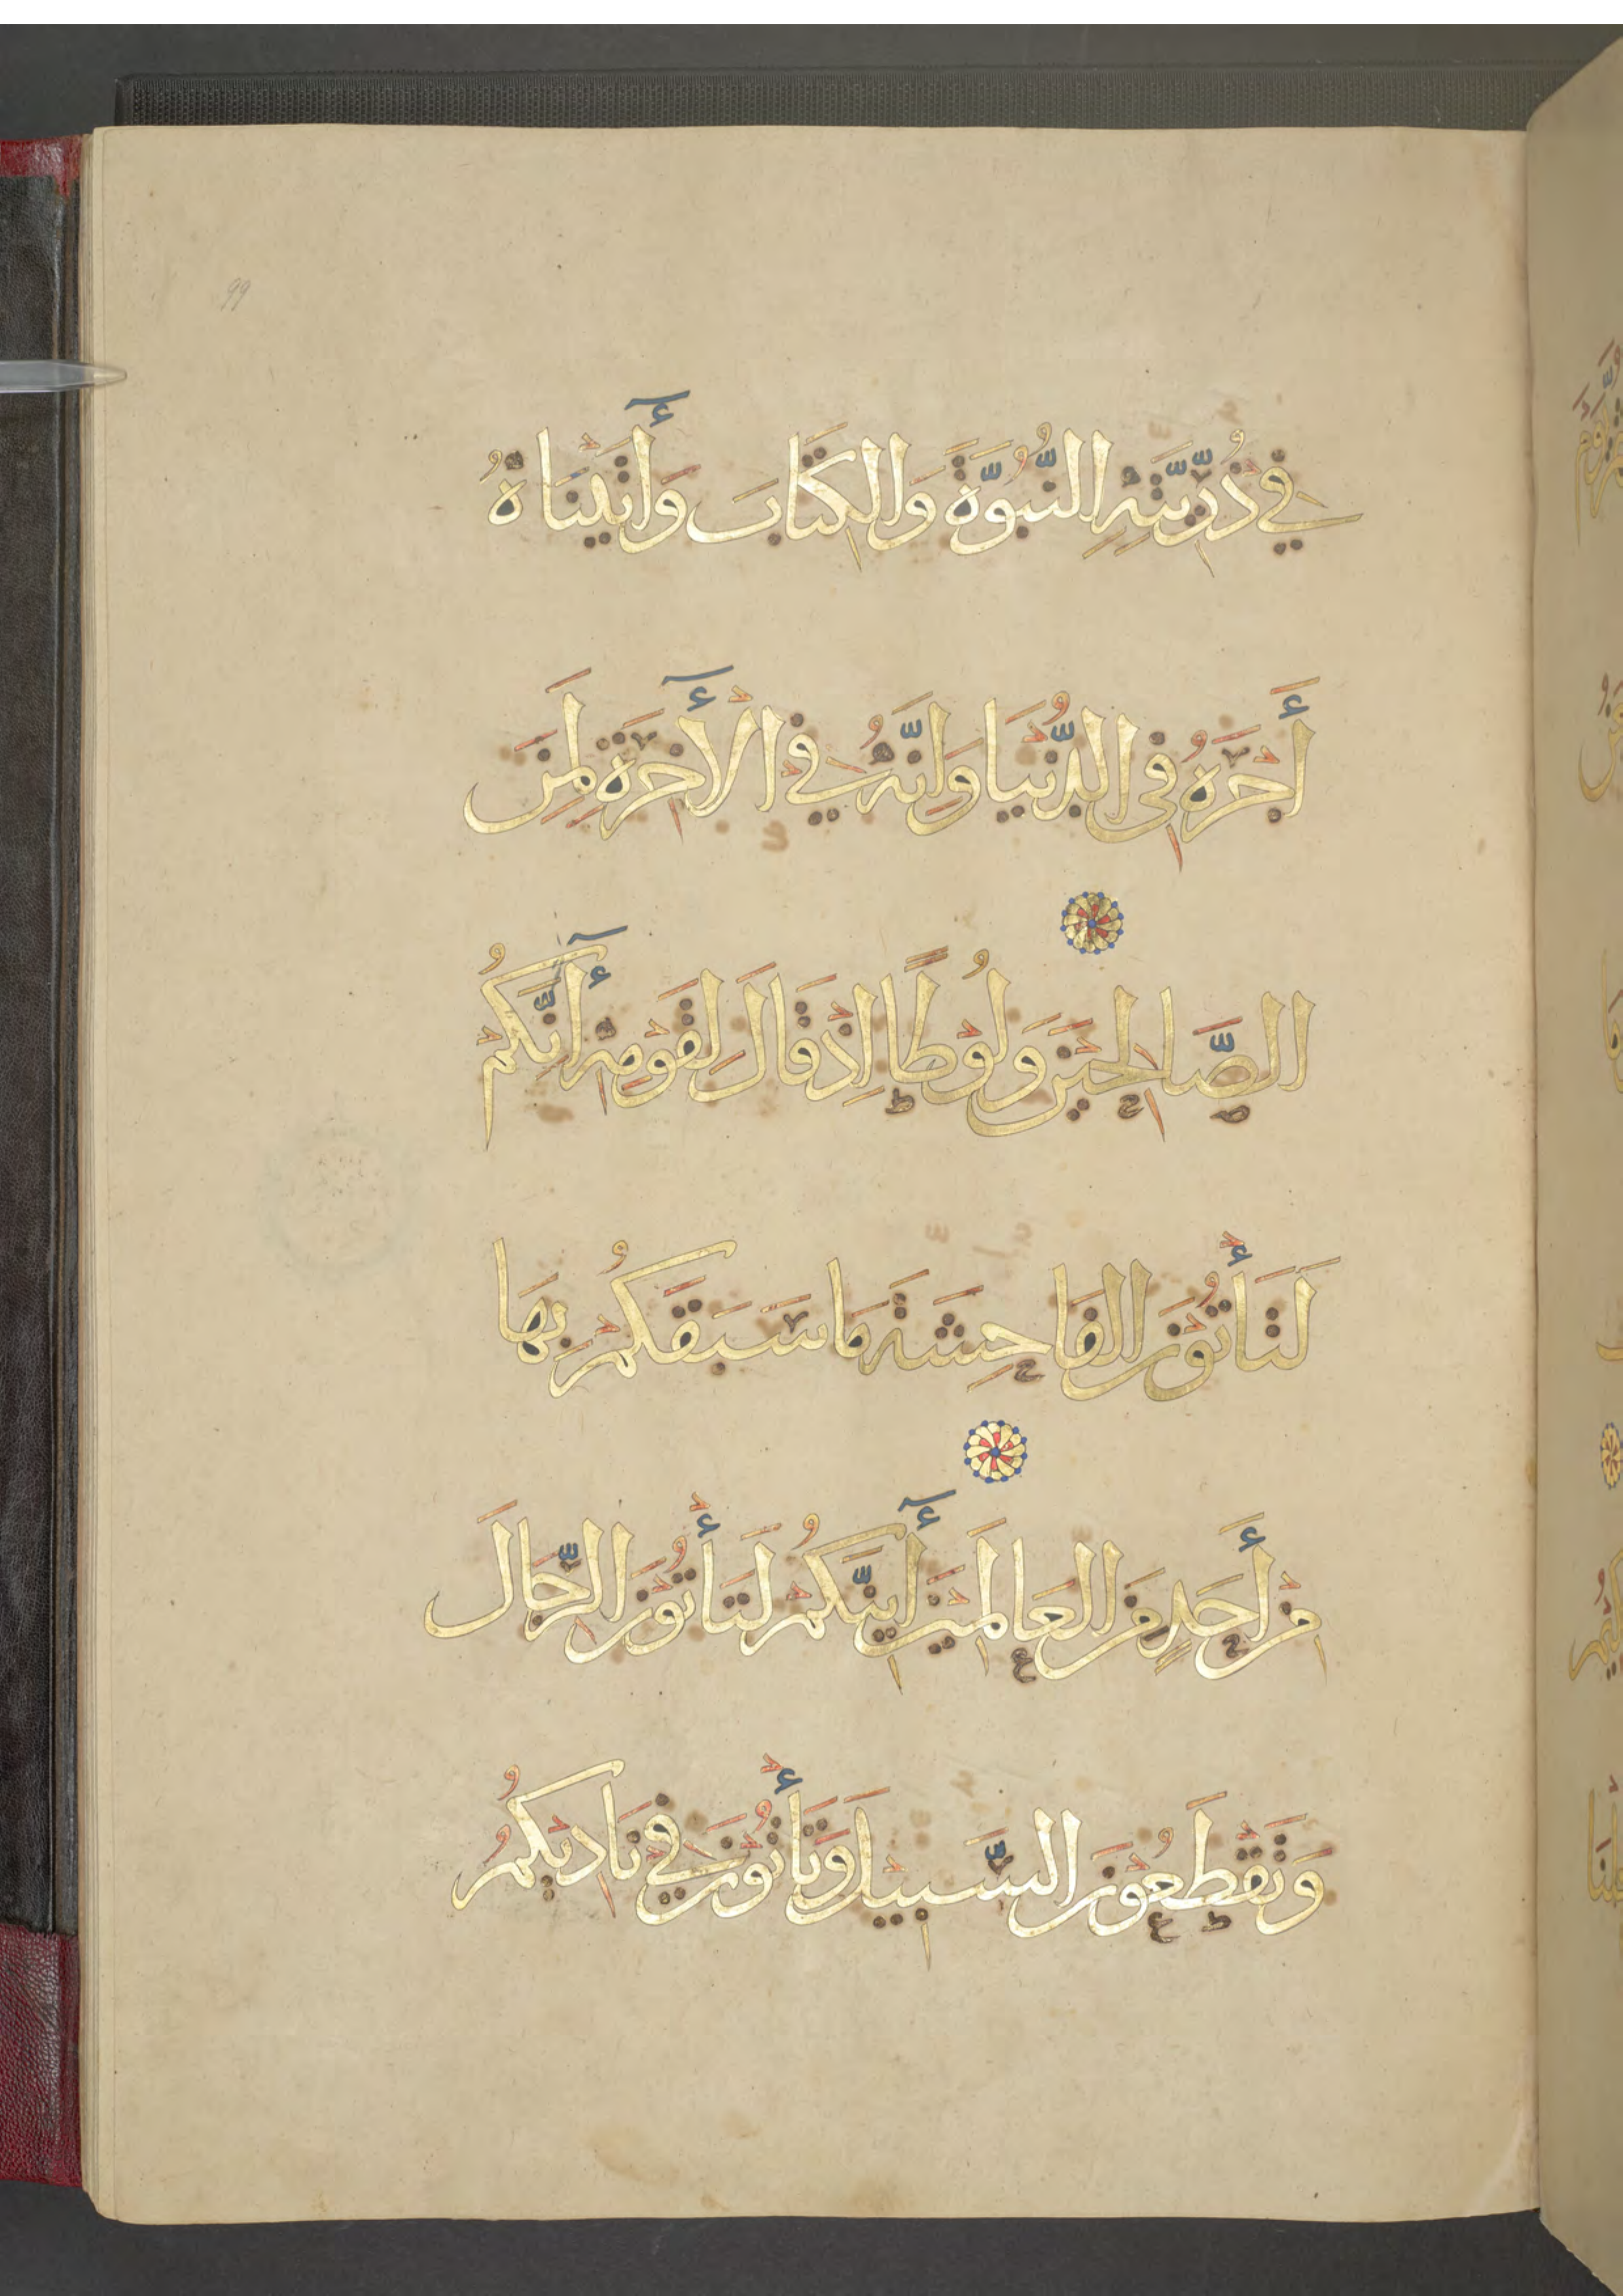 في ذُرِّيَّتِهِ النُّبُوَّةَ وَالكِتَابَ وَأٓتَيْنَاهُ
أَجْرَهُ فِى الدُّنْيَا وَاِنَّهُ فِي الْأٓخِرَةِ لَمِنَ
الصَّالِحِيْنَ وَلُوْطًا اِذْ قَالَ لِقَوْمِهِ أٓنَّكُمْ
لَتَأْتُوْنَ الفَاحِشَةَ مَا سَبَقَكُمْ بِهَا
مِنْ أَحَدٍ مِنَ العَالَمِيْنَ أٓيِنَّكُمْ لَتَأْتُوْنَ الرِّجَالَ
وَتَقْطَعُوْنَ السَّبِيْلَ وَتَأْتُوْنَ فِي نَادِيْكُمُ
99